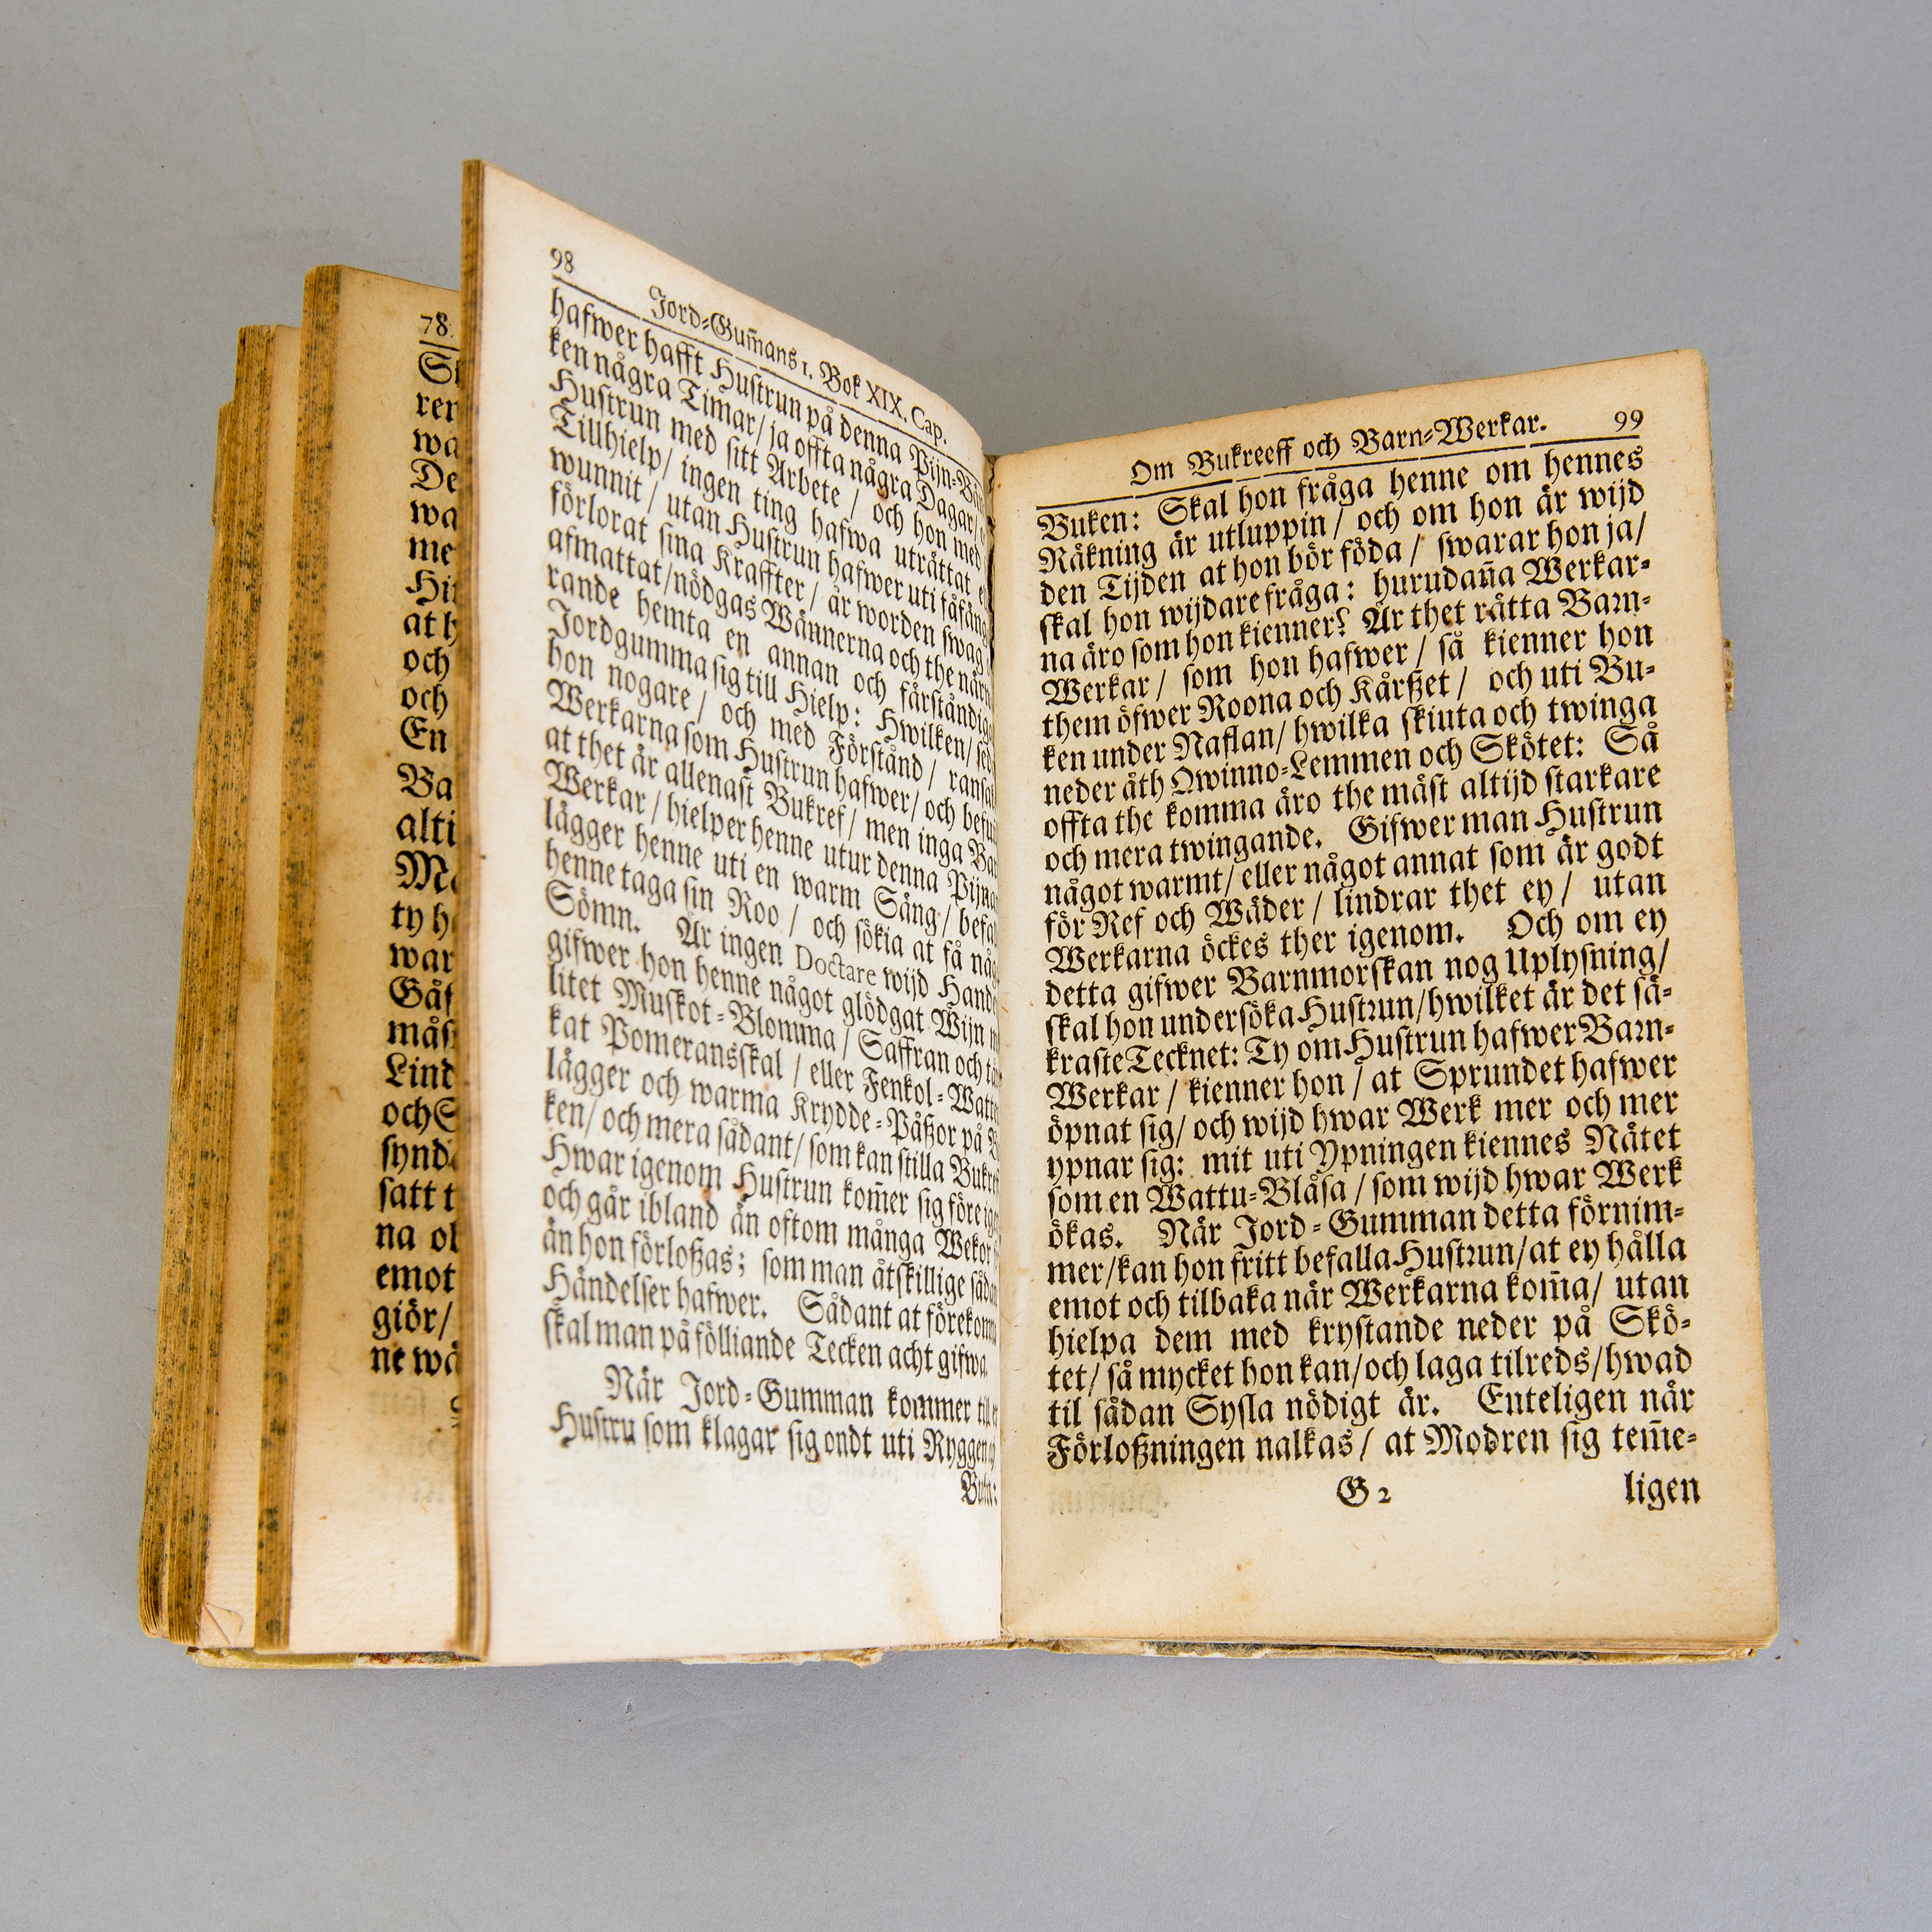 78.
Si
ren
wa
De
wa
me
Hin
at h
och
och
En
Ba
alti
Me
ty h
war
Gås
måst
Lint
och S
synd
satt t
na ol
emot
giör/
ne wä
98 Jord-Gum̃ans 1. Bok XIX. Cap.
hafwer hafft Hustrun på denna Pijn-Bän
ken några Timar/ ja offta några Dagar/
Hustrun med sitt Arbete / och hon med
Tillhielp/ ingen ting hafwa uträttat e
wunnit / utan Hustrun hafwer uti fåfäng
förlorat sina Kraffter / är worden swag
afmattat/nödgas Wännerna och the närn
rande hemta en annan och förståndig
Jordgumma sig till Hielp: Hwilken/ sed
hon nogare / och med Förstånd / ransak
Werkarna som Hustrun hafwer/ och befu
at thet är allenast Bukref/ men inga Bar
Werkar / hielper henne utur denna Pijna
lägger henne uti en warm Säng / befa
henne taga sin Roo / och sökia at få någ
Sömn. Är ingen Doctare wijd Hande
gifwer hon henne något glödgat Wijn m
litet Muskot-Blomma / Saffran och tä
kat Pomeransskal / eller Fenkol-Watte
lägger och warma Krydde-Påßor på B
ken/ och mera sådant/ som kan stilla Bukref
Hwar igenom Hustrun kom̃er sig före ige
och går ibland än oftom många Wekor
än hon förloßas; som man åtskillige sådan
Händelser hafwer. Sådant at förekomma
skal man på fölliande Tecken acht gifwa.
När Jord-Gumman kommer till en
Hustru som klagar sig ondt uti Ryggen och
Buken:
Om Bukreeff och Barn-Werkar. 99
Buken: Skal hon fråga henne om hennes
Räkning är utluppin/ och om hon är wijd
den Tijden at hon bör föda / swarar hon ja/
skal hon wijdare fråga: hurudaña Werkar-
na äro som hon kienner? Är thet rätta Barn-
Werkar/ som hon hafwer / så kienner hon
them öfwer Roona och Kårßet / och uti Bu-
ken under Naflan/ hwilka skiuta och twinga
neder åth Qwinno-Lemmen och Skötet: Så
offta the komma äro the mäst altijd starkare
och mera twingande. Gifwer man Hustrun
något warmt/ eller något annat som är godt
för Ref och Wäder / lindrar thet ey / utan
Werkarna öckes ther igenom. Och om ey
detta gifwer Barnmorskan nog Uplysning/
skal hon undersöka Hustrun/hwilket är det sä-
kraste Tecknet: Ty om Hustrun hafwer Barn-
Werkar / kienner hon / at Sprundet hafwer
öpnat sig/ och wijd hwar Werk mer och mer
ypnar sig: mit uti Ypningen kiennes Nätet
som en Wattu-Blåsa / som wijd hwar Werk
ökas. När Jord-Gumman detta förnim-
mer/kan hon fritt befalla Hustrun/at ey hålla
emot och tilbaka när Werkarna kom̃a/ utan
hielpa dem med krystande neder på Skö-
tet/ så mycket hon kan/och laga tilreds/hwad
til sådan Sysla nödigt är. Enteligen när
Förloßningen nalkas/ at Modren sig tem̃e-
G 2 ligen